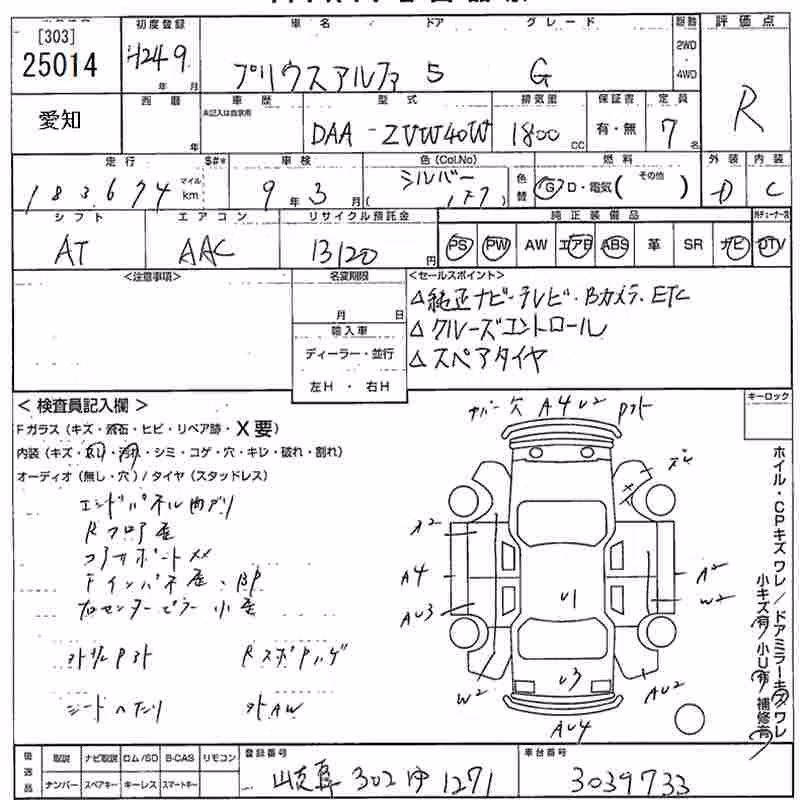 [303]
25014
愛知
初度登録 車名 ドア グレード 駆動 評価点
H24 9 プリウスアルファ 5 G 2WD ・ 4WD R
年 月
西暦 車歴 型式 排気量 保証書 定員
年 未記入は自家用 DAA-ZVW40W 1800 CC 有・無 7 名
走行 S#* 車検 色(Col.No) 燃料 外装 内装
183,674 マイル km 9年 3月 シルバー ( 1F7 ) 色替 G D・電気( その他 ) D C
シフト エアコン リサイクル預託金 純正装備品 外チューナー含
AT AAC 13120 円 PS PW AW エアB ABS 革 SR ナビ DTV
<注意事項> 名変期限 <セールスポイント>
月 日
△純正ナビ・テレビ・Bカメラ・ETC
輸入車
△クルーズコントロール
ディーラー・並行
△スペアタイヤ
左H ・ 右H
<検査員記入欄> キーロック
Fガラス(キズ・飛石・ヒビ・リペア跡・X要)
内装(キズ・スレ・汚れ・シミ・コゲ・穴・キレ・破れ・割れ)
オーディオ(無し・穴)/タイヤ(スタッドレス)
エンドパネル曲グリ
Rフロア歪
コアサポートメメ
Fインパネ歪、BP
右センターピラー小歪
外板Pヌケ Rスポハゲ
シートヘタリ 外AW
ナンバー穴 A4U2 Pヌケ
A2
A4
AU3
W2
A2
W2
AU2
U1
U3
AU4
ホイル・CPキズ ワレ/ドアミラーキズワレ
小キズ有/小U有/補修有
後送品 取説 ナビ取説 ロム/SD B-CAS リモコン 登録番号 車台番号
ナンバー スペアキー キーレス スマートキー 302 ゆ 1271 3039733